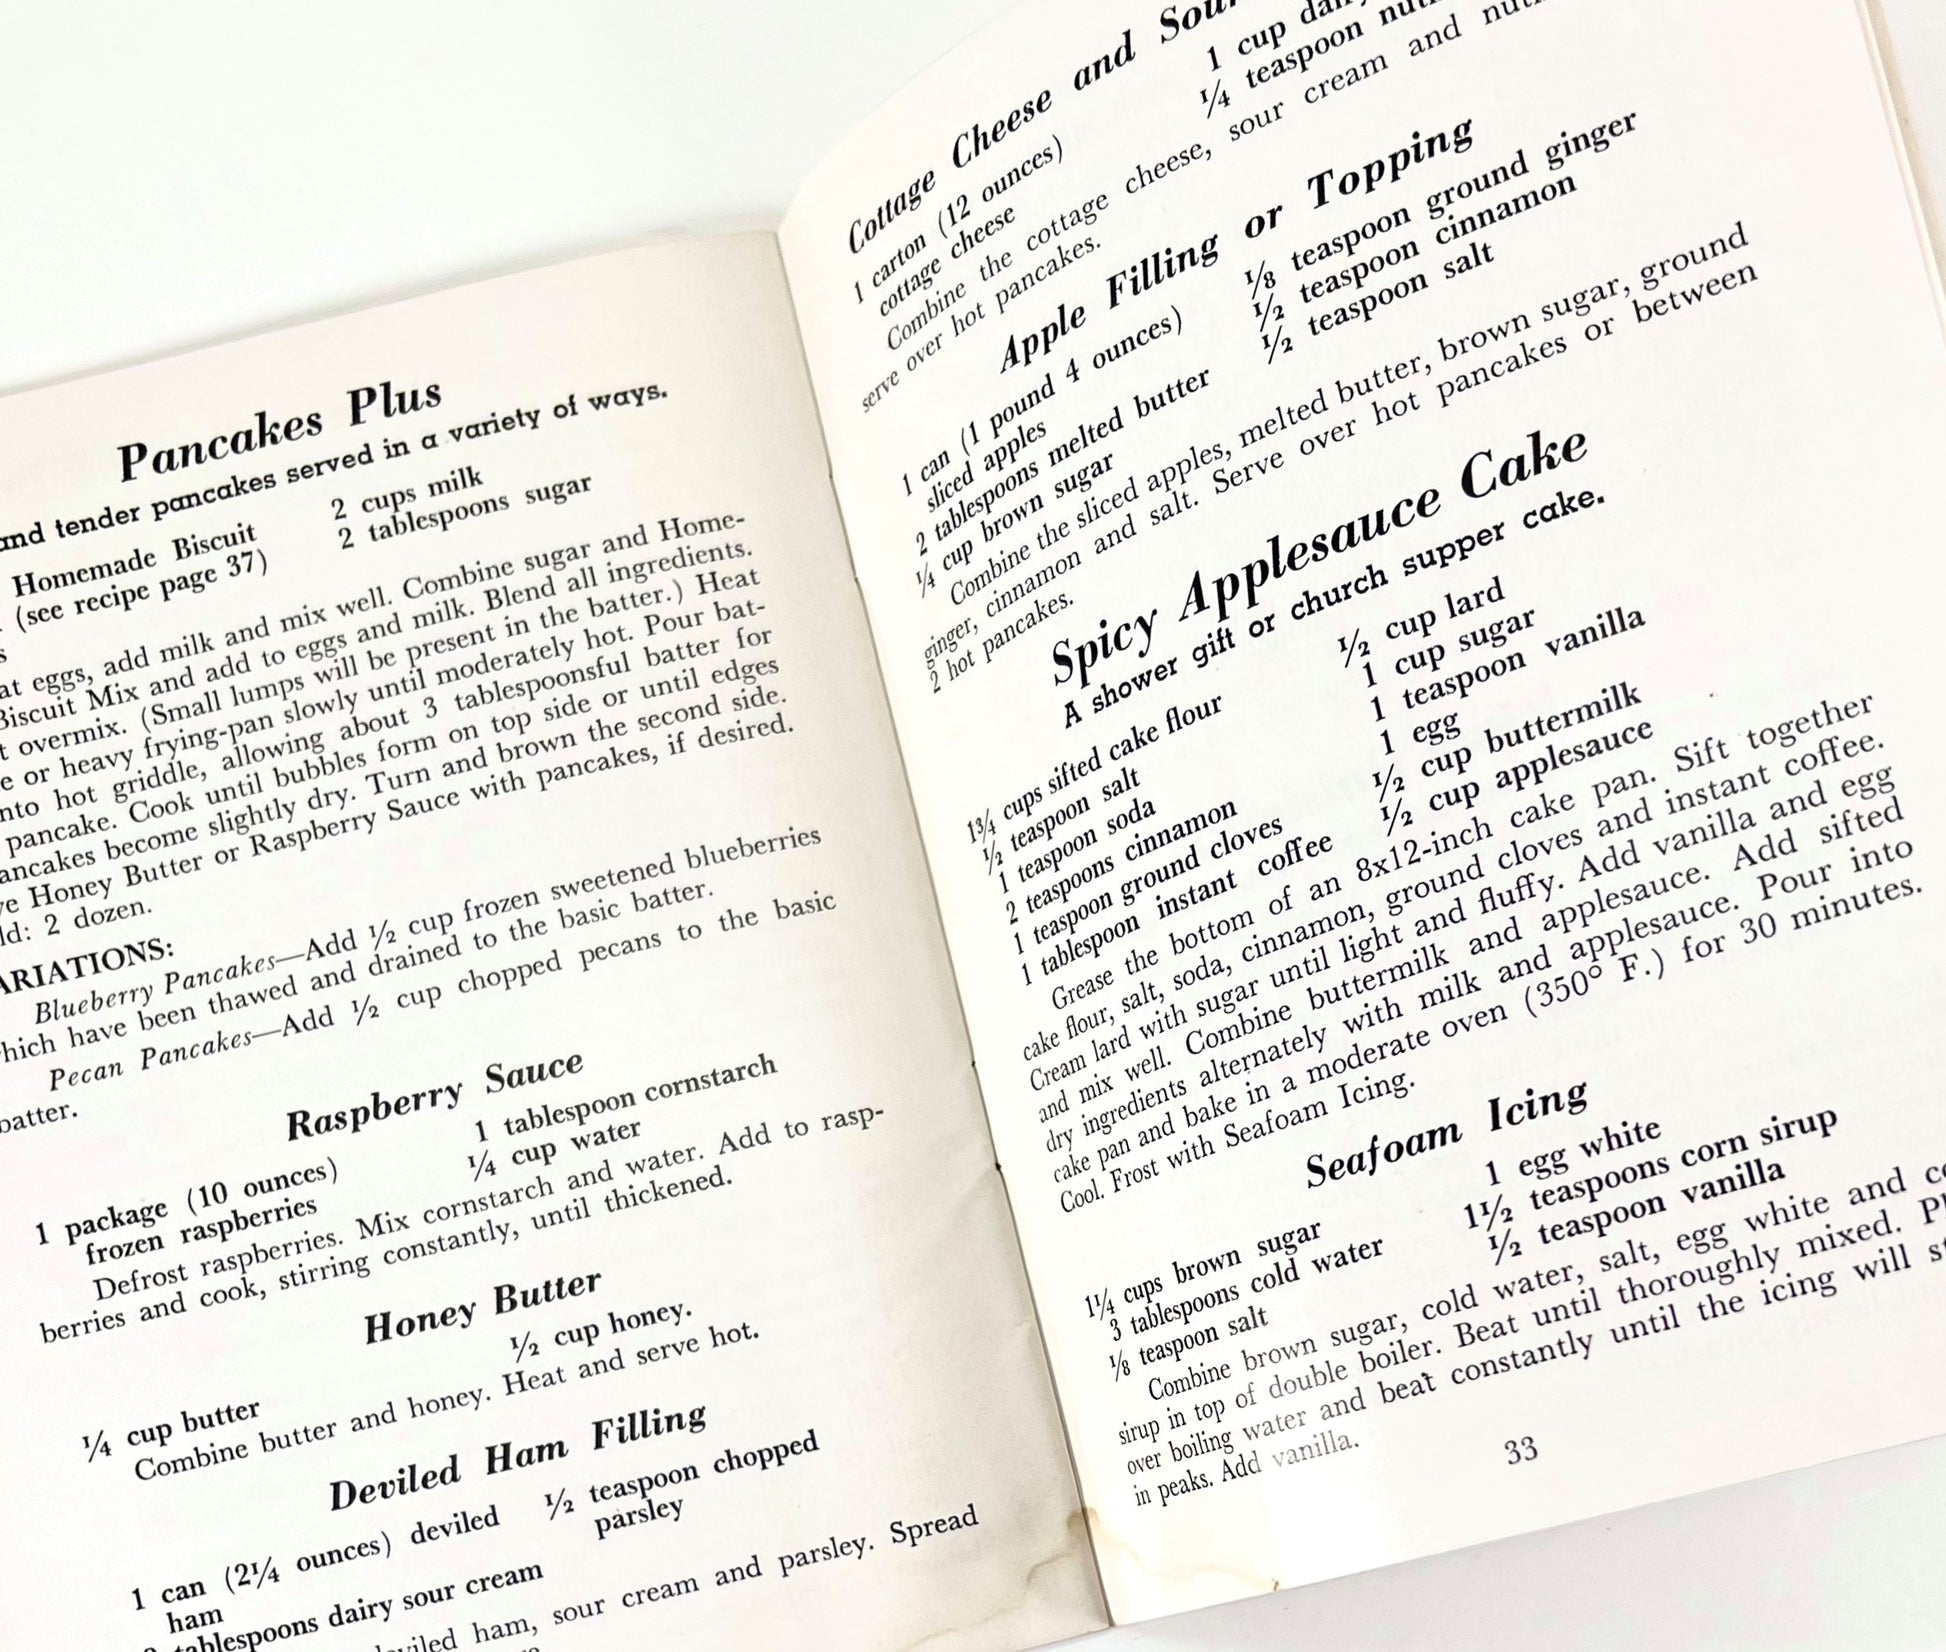 Pancakes Plus
and tender pancakes served in a variety of ways.
Homemade Biscuit
(see recipe page 37)
2 cups milk
2 tablespoons sugar
eggs, add milk and mix well. Combine sugar and Home-
Biscuit Mix and add to eggs and milk. Blend all ingredients.
overmix. (Small lumps will be present in the batter.) Heat
or heavy frying-pan slowly until moderately hot. Pour bat-
hot griddle, allowing about 3 tablespoonsful batter for
pancake. Cook until bubbles form on top side or until edges
become slightly dry. Turn and brown the second side.
Honey Butter or Raspberry Sauce with pancakes, if desired.
2 dozen.
ARIATIONS:
Blueberry Pancakes—Add 1/2 cup frozen sweetened blueberries
which have been thawed and drained to the basic batter.
Pecan Pancakes—Add 1/2 cup chopped pecans to the basic
batter.
Raspberry Sauce
1 package (10 ounces)
frozen raspberries
1 tablespoon cornstarch
1/4 cup water
Defrost raspberries. Mix cornstarch and water. Add to rasp-
berries and cook, stirring constantly, until thickened.
Honey Butter
1/4 cup butter
1/2 cup honey.
Combine butter and honey. Heat and serve hot.
Deviled Ham Filling
1 can (2 1/4 ounces) deviled
ham
tablespoons dairy sour cream
1/2 teaspoon chopped
parsley
ham, sour cream and parsley. Spread
Cottage Cheese and
1 carton (12 ounces)
cottage cheese
1 cup
1/4 teaspoon
Combine the cottage cheese, sour cream and
serve over hot pancakes.
Apple Filling or Topping
1 can (1 pound 4 ounces)
sliced apples
2 tablespoons melted butter
1/4 cup brown sugar
1/8 teaspoon ground ginger
1/2 teaspoon cinnamon
1/2 teaspoon salt
Combine the sliced apples, melted butter, brown sugar, ground
ginger, cinnamon and salt. Serve over hot pancakes or between
2 hot pancakes.
Spicy Applesauce Cake
A shower gift or church supper cake.
1 3/4 cups sifted cake flour
1/2 teaspoon salt
1 teaspoon soda
2 teaspoons cinnamon
1 teaspoon ground cloves
1 tablespoon instant coffee
1/2 cup lard
1 cup sugar
1 teaspoon vanilla
1 egg
1/2 cup buttermilk
1/2 cup applesauce
Grease the bottom of an 8x12-inch cake pan. Sift together
cake flour, salt, soda, cinnamon, ground cloves and instant coffee.
Cream lard with sugar until light and fluffy. Add vanilla and egg
and mix well. Combine buttermilk and applesauce. Add sifted
dry ingredients alternately with milk and applesauce. Pour into
cake pan and bake in a moderate oven (350° F.) for 30 minutes.
Cool. Frost with Seafoam Icing.
Seafoam Icing
1 1/4 cups brown sugar
3 tablespoons cold water
1/8 teaspoon salt
1 egg white
1 1/2 teaspoons corn sirup
1/2 teaspoon vanilla
Combine brown sugar, cold water, salt, egg white and
sirup in top of double boiler. Beat until thoroughly mixed.
over boiling water and beat constantly until the icing will
in peaks. Add vanilla.
33